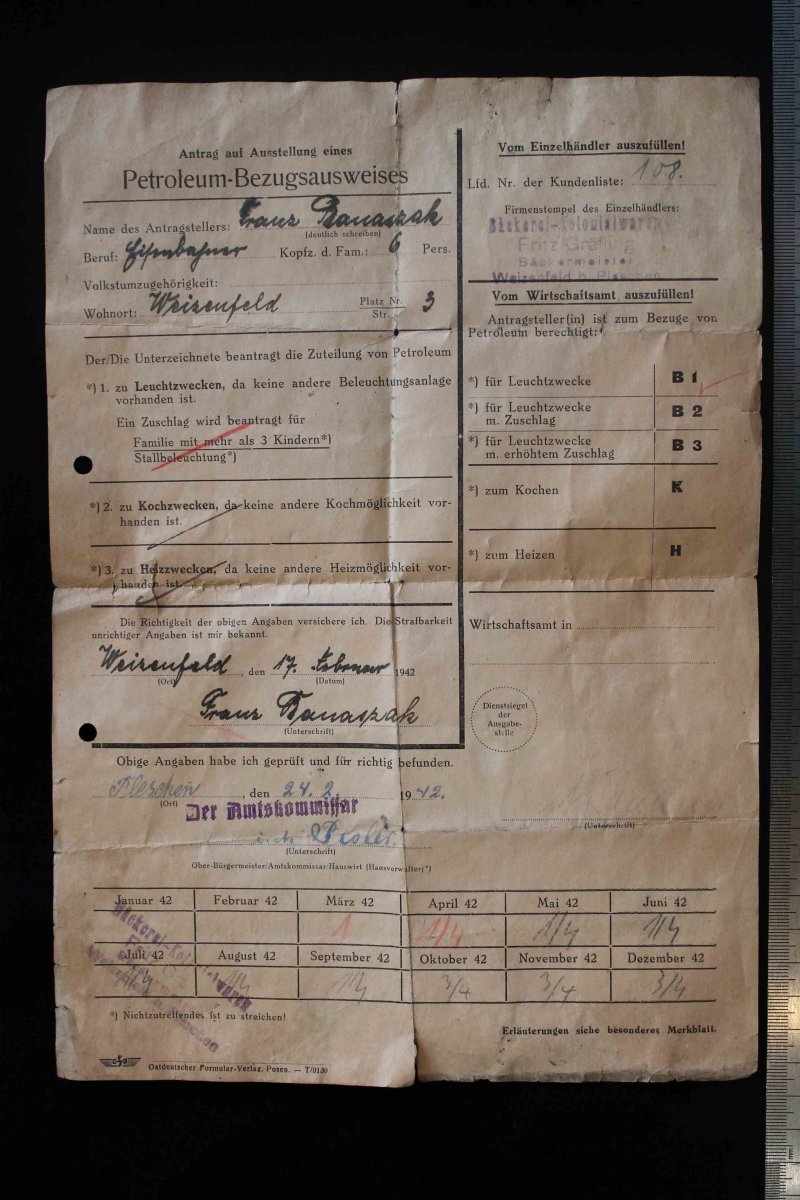 Antrag auf Ausstellung eines
Petroleum-Bezugsausweises
Name des Antragstellers: Franz Banaszak
(deutlich schreiben)
Beruf: Eisenbahner Kopfz. d. Fam.: 6 Pers.
Volkstumzugehörigkeit:
Wohnort: Weizenfeld Platz Nr. 3
Str.
Der/Die Unterzeichnete beantragt die Zuteilung von Petroleum
*) 1. zu Leuchtzwecken, da keine andere Beleuchtungsanlage
vorhanden ist.
Ein Zuschlag wird beantragt für
Familie mit mehr als 3 Kindern*)
Stallbeleuchtung*)
*) 2. zu Kochzwecken, da keine andere Kochmöglichkeit vor-
handen ist.
*) 3. zu Heizzwecken, da keine andere Heizmöglichkeit vor-
handen ist.
Die Richtigkeit der obigen Angaben versichere ich. Die Strafbarkeit
unrichtiger Angaben ist mir bekannt.
Weizenfeld, den 17. Februar 1942
(Ort) (Datum)
Franz Banaszak
(Unterschrift)
Vom Einzelhändler auszufüllen!
Lfd. Nr. der Kundenliste: 108.
Firmenstempel des Einzelhändlers:
Bäckerei-Kolonialwaren
Fritz Gräfling
Bäckermeister
Weizenfeld b. Pleschen
Vom Wirtschaftsamt auszufüllen!
Antragsteller(in) ist zum Bezuge von
Petroleum berechtigt:
*) für Leuchtzwecke B 1
*) für Leuchtzwecke
m. Zuschlag B 2
*) für Leuchtzwecke
m. erhöhtem Zuschlag B 3
*) zum Kochen K
*) zum Heizen H
Wirtschaftsamt in
Dienstsiegel
der
Ausgabe-
stelle
(Unterschrift)
Obige Angaben habe ich geprüft und für richtig befunden.
Pleschen, den 24. 2. 1942.
(Ort)
Der Amtskommissar
(Unterschrift)
Ober-Bürgermeister/Amtskommissar/Hauswirt (Hausverwalter)*)
Januar 42 Februar 42 März 42 April 42 Mai 42 Juni 42
1 1/4 1/4 1/4
Juli 42 August 42 September 42 Oktober 42 November 42 Dezember 42
3/4 3/4 3/4
Bäckerei-Kolonialwaren
*) Nichtzutreffendes ist zu streichen!
Erläuterungen siehe besonderes Merkblatt.
Ostdeutscher Formular-Verlag, Posen. — T/0130